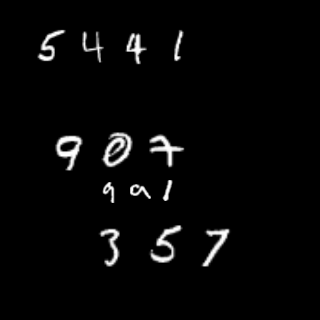 5 4 4 1
9 0 7
9 0 1
3 5 7